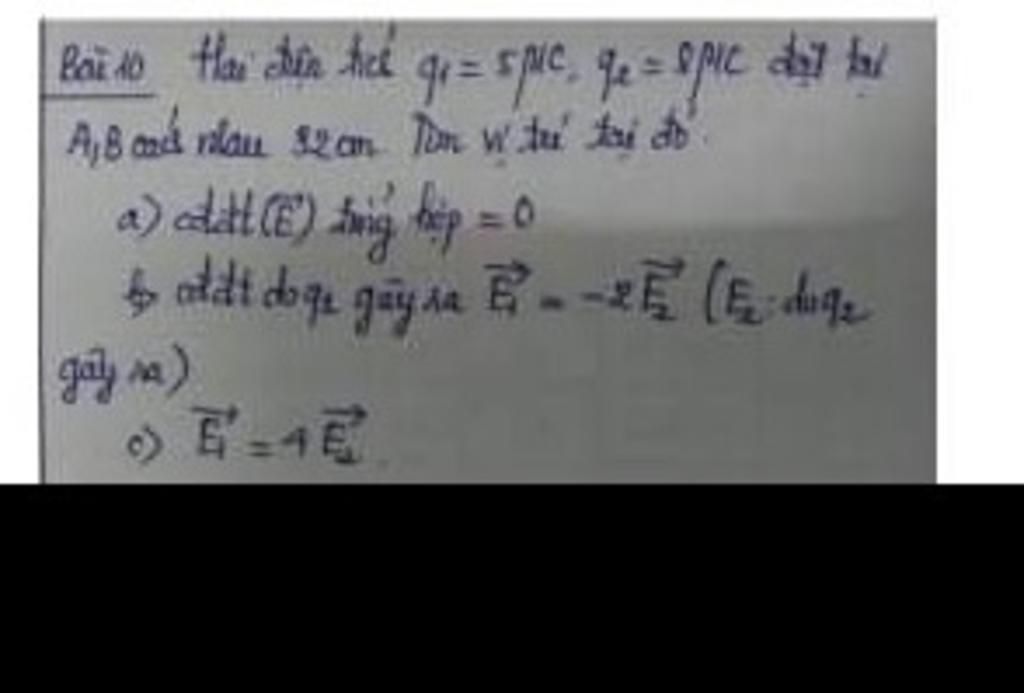 Bài 10 Hai điện tích q1 = 5μC, q2 = 8μC đặt tại
A, B cách nhau 32cm. Tìm vị trí tại đó.
a) cđđt (E→) tổng hợp = 0
b) cđđt do q1 gây ra E1→ = -2E2→ (E2: do q2
gây ra)
c) E1→ = 4E2→.